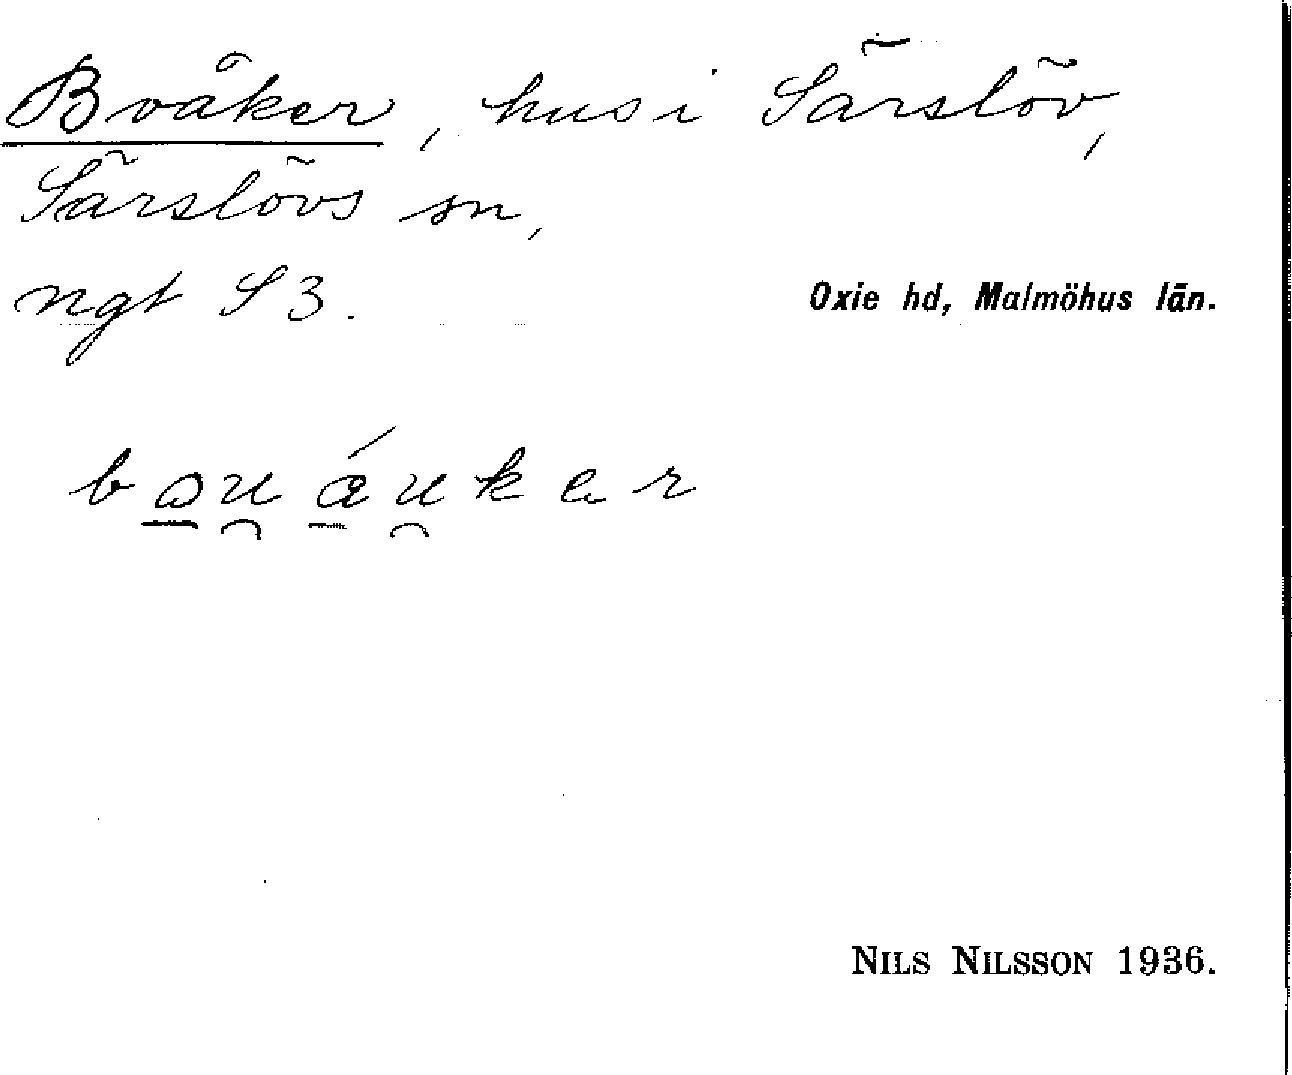 Bvåker, hus i Särslöv,
Särslövs sn,
ngt S 3.
Oxie hd, Malmöhus län.
NILS NILSSON 1936.